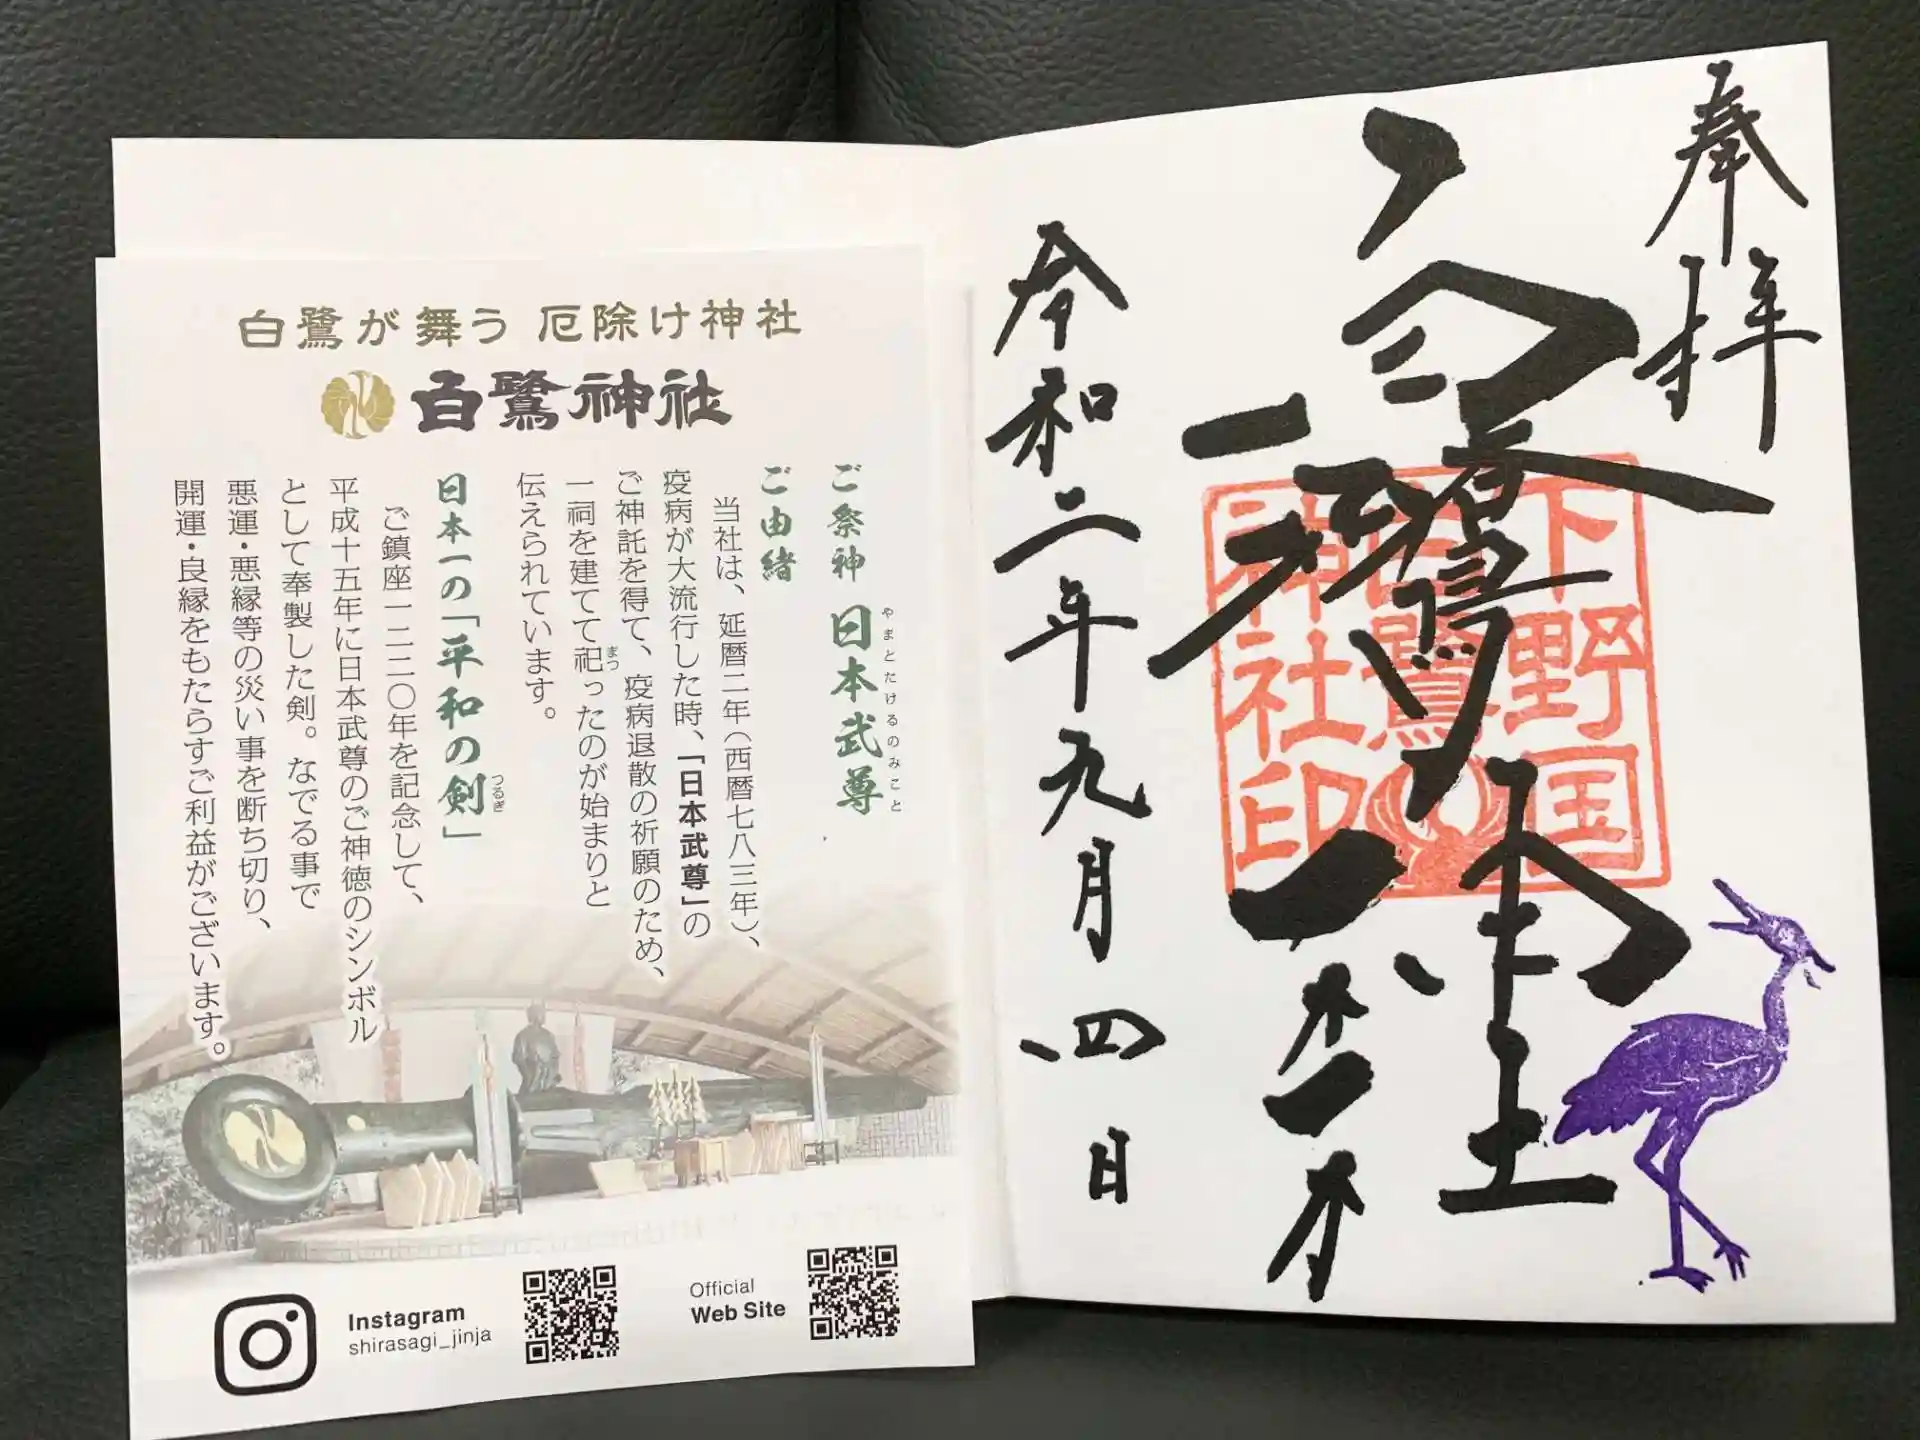 白鷺が舞う 厄除け神社
白鷺神社
ご祭神 日本武尊
やまとたけるのみこと
ご由緒
当社は、延暦二年(西暦七八三年)、
疫病が大流行した時、「日本武尊」の
ご神託を得て、疫病退散の祈願のため、
一祠を建てて祀ったのが始まりと
まつ
伝えられています。
日本一の「平和の剣」
つるぎ
ご鎮座一二二〇年を記念して、
平成十五年に日本武尊のご神徳のシンボル
として奉製した剣。なでる事で
悪運・悪縁等の災い事を断ち切り、
開運・良縁をもたらすご利益がございます。
Instagram
shirasagi_jinja
Official
Web Site
奉拝
令和二年九月四日
下野国
白鷺
神社印